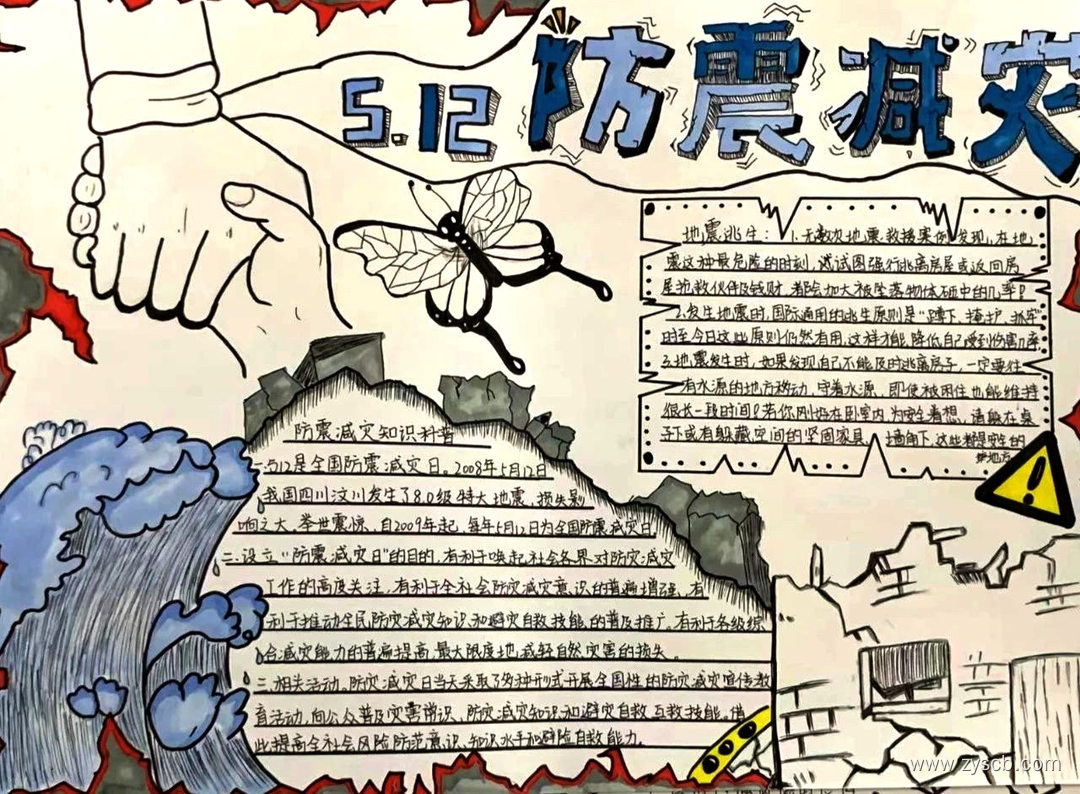 5.12 防震减灾
地震逃生：1.无数次地震救援案例发现，在地
震这种最危险的时刻，试图强行逃离房屋或返回房
屋抢救伙伴及钱财，都会加大被坠落物体砸中的几率！
2.发生地震时，国际通用的逃生原则是“蹲下、掩护、抓牢”
时至今日这些原则仍然有用，这样才能降低自己受到伤害几率，
3.地震发生时，如果发现自己不能及时逃离房子，一定要往
有水源的地方移动，守着水源，即使被困住也能维持
很长一段时间！若你刚好在卧室内，为安全着想，请躲在桌
子下或有躲藏空间的坚固家具、墙角下，这些都是安全的
地方
防震减灾知识科普
一、512是全国防震减灾日。2008年5月12日
我国四川汶川发生了8.0级特大地震，损失影
响之大，举世震惊，自2009年起，每年5月12日为全国防震减灾日
二、设立“防震减灾日”的目的，有利于唤起社会各界对防灾减灾
工作的高度关注，有利于全社会防灾减灾意识的普遍增强，有
利于推动全民防灾减灾知识和避灾自救技能的普及推广，有利于各级综
合减灾能力的普遍提高，最大限度地减轻自然灾害的损失。
三、相关活动。防灾减灾日当天采取了多种形式开展全国性的防灾减灾宣传教
育活动，向公众普及灾害常识、防灾减灾知识和避灾自救互救技能。借
此提高全社会风险防范意识、知识水平和避险自救能力。
www.zyscb.com